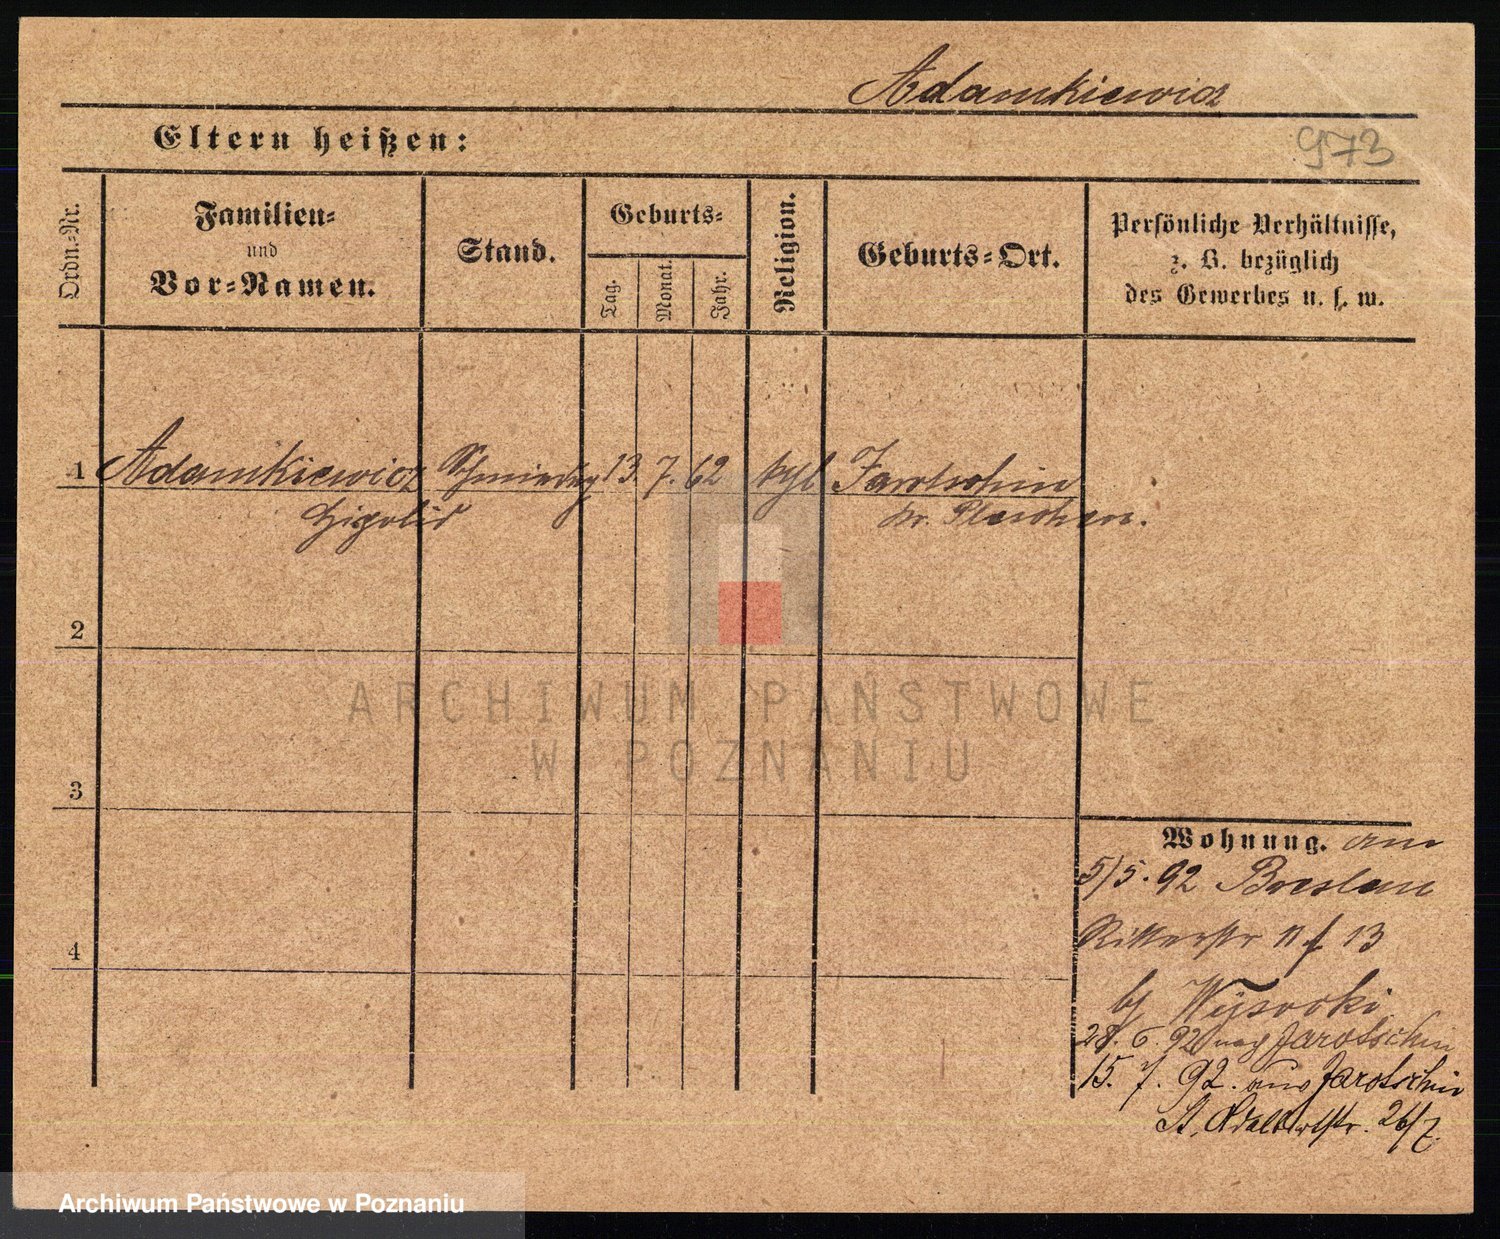 Adamkiewicz
973
Eltern heißen:
Ordn.-Nr.
Familien-
und
Vor-Namen.
Stand.
Geburts-
Tag.
Monat.
Jahr.
Religion.
Geburts-Ort.
Persönliche Verhältnisse,
z. B. bezüglich
des Gewerbes u. s. w.
1 Adamkiewicz 13. 7. 62 kth Jarotschin
kr. Pleschen.
2
3
4
Wohnung. aus
5/5. 92 Breslau
Ritterstr 13
bj Wysocki
28. 6. 92 nach Jarotschin
15. 7. 92. aus Jarotschin
St. Adalbertstr. 26/7.
ARCHIWUM PAŃSTWOWE
W POZNANIU
Archiwum Państwowe w Poznaniu